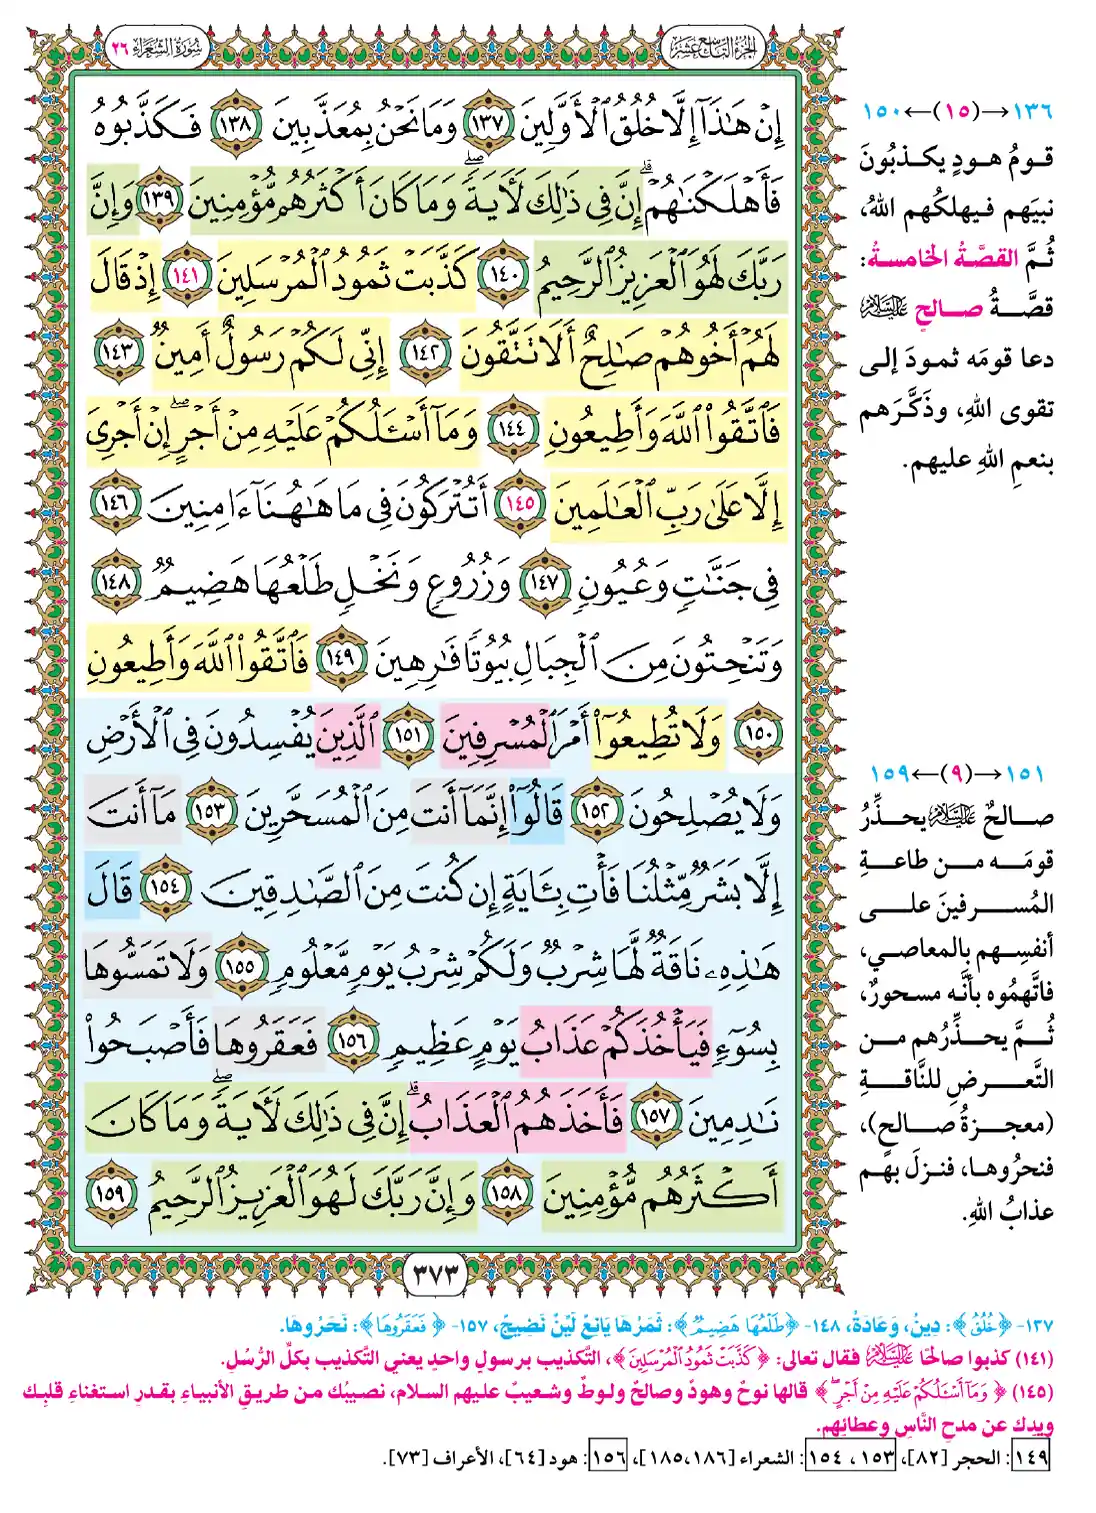 الجزء التاسع عشر
سورة الشعراء ٢٦
إِنْ هَٰذَآ إِلَّا خُلُقُ ٱلْأَوَّلِينَ ١٣٧ وَمَا نَحْنُ بِمُعَذَّبِينَ ١٣٨ فَكَذَّبُوهُ
فَأَهْلَكْنَٰهُمْ ۗ إِنَّ فِى ذَٰلِكَ لَءَايَةً ۖ وَمَا كَانَ أَكْثَرُهُم مُّؤْمِنِينَ ١٣٩ وَإِنَّ
رَبَّكَ لَهُوَ ٱلْعَزِيزُ ٱلرَّحِيمُ ١٤٠ كَذَّبَتْ ثَمُودُ ٱلْمُرْسَلِينَ ١٤١ إِذْ قَالَ
لَهُمْ أَخُوهُمْ صَٰلِحٌ أَلَا تَتَّقُونَ ١٤٢ إِنِّى لَكُمْ رَسُولٌ أَمِينٌ ١٤٣
فَٱتَّقُوا۟ ٱللَّهَ وَأَطِيعُونِ ١٤٤ وَمَآ أَسْـَٔلُكُمْ عَلَيْهِ مِنْ أَجْرٍ ۖ إِنْ أَجْرِىَ
إِلَّا عَلَىٰ رَبِّ ٱلْعَٰلَمِينَ ١٤٥ أَتُتْرَكُونَ فِى مَا هَٰهُنَآ ءَامِنِينَ ١٤٦
فِى جَنَّٰتٍ وَعُيُونٍ ١٤٧ وَزُرُوعٍ وَنَخْلٍ طَلْعُهَا هَضِيمٌ ١٤٨
وَتَنْحِتُونَ مِنَ ٱلْجِبَالِ بُيُوتًا فَٰرِهِينَ ١٤٩ فَٱتَّقُوا۟ ٱللَّهَ وَأَطِيعُونِ
١٥٠ وَلَا تُطِيعُوٓا۟ أَمْرَ ٱلْمُسْرِفِينَ ١٥١ ٱلَّذِينَ يُفْسِدُونَ فِى ٱلْأَرْضِ
وَلَا يُصْلِحُونَ ١٥٢ قَالُوٓا۟ إِنَّمَآ أَنتَ مِنَ ٱلْمُسَحَّرِينَ ١٥٣ مَآ أَنتَ
إِلَّا بَشَرٌ مِّثْلُنَا فَأْتِ بِـَٔايَةٍ إِن كُنتَ مِنَ ٱلصَّٰدِقِينَ ١٥٤ قَالَ
هَٰذِهِۦ نَاقَةٌ لَّهَا شِرْبٌ وَلَكُمْ شِرْبُ يَوْمٍ مَّعْلُومٍ ١٥٥ وَلَا تَمَسُّوهَا
بِسُوٓءٍ فَيَأْخُذَكُمْ عَذَابُ يَوْمٍ عَظِيمٍ ١٥٦ فَعَقَرُوهَا فَأَصْبَحُوا۟
نَٰدِمِينَ ١٥٧ فَأَخَذَهُمُ ٱلْعَذَابُ ۗ إِنَّ فِى ذَٰلِكَ لَءَايَةً ۖ وَمَا كَانَ
أَكْثَرُهُم مُّؤْمِنِينَ ١٥٨ وَإِنَّ رَبَّكَ لَهُوَ ٱلْعَزِيزُ ٱلرَّحِيمُ ١٥٩
٣٧٣
١٣٦→(١٥)←١٥٠
قومُ هودٍ يكذبُونَ
نبيَهم فيهلكُهم اللهُ،
ثُمَّ القصَّةُ الخامسةُ:
قصَّةُ صالحٍ عليه السلام
دعا قومَه ثمودَ إلى
تقوى اللهِ، وذَكَّرَهم
بنعمِ اللهِ عليهم.
١٥١→(٩)←١٥٩
صالحٌ عليه السلام يحذِّرُ
قومَه من طاعةِ
المُسرفينَ على
أنفسِهم بالمعاصي،
فاتَّهمُوه بأنَّه مسحورٌ،
ثُمَّ يحذِّرُهم من
التَّعرضِ للنَّاقةِ
(معجزةُ صالحٍ)،
فنحرُوها، فنزلَ بهم
عذابُ اللهِ.
١٣٧- ﴿خُلُقُ﴾: دِينُ، وَعَادَةُ، ١٤٨- ﴿طَلْعُهَا هَضِيمٌ﴾: ثَمَرُهَا يَانِعٌ لَيِّنٌ نَضِيجٌ، ١٥٧- ﴿فَعَقَرُوهَا﴾: نَحَرُوهَا.
(١٤١) كذبوا صالحًا عليه السلام فقال تعالى: ﴿كَذَّبَتْ ثَمُودُ ٱلْمُرْسَلِينَ﴾، التَّكذيب برسولٍ واحدٍ يعني التَّكذيب بكلِّ الرُّسُلِ.
(١٤٥) ﴿وَمَآ أَسْـَٔلُكُمْ عَلَيْهِ مِنْ أَجْرٍ ۖ﴾ قالها نوحٌ وهودٌ وصالحٌ ولوطٌ وشعيبٌ عليهم السلام، نصيبُك من طريقِ الأنبياءِ بقدرِ استغناءِ قلبِك
ويدِك عن مدحِ النَّاسِ وعطائِهم.
١٤٩: الحجر [٨٢]، ١٥٣، ١٥٤: الشعراء [١٨٥،١٨٦]، ١٥٦: هود [٦٤]، الأعراف [٧٣].